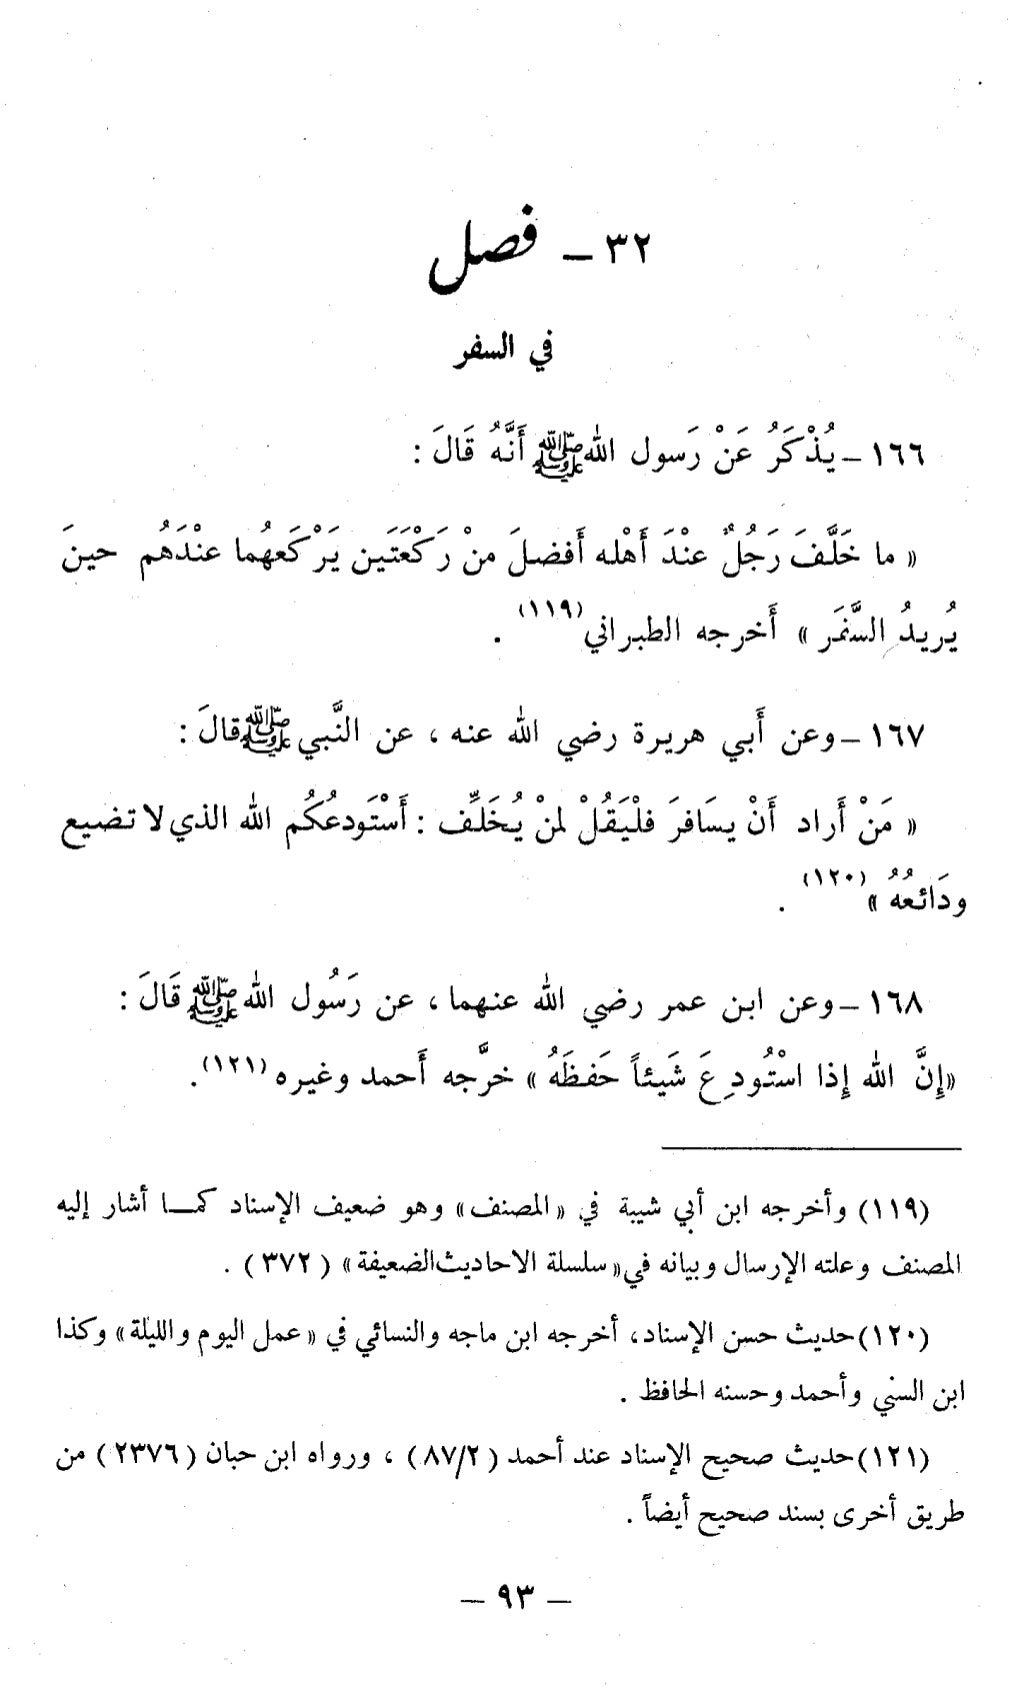 ٣٢ – فصل
في السفر
١٦٦ – يُذْكَرُ عَنْ رَسول الله ﷺ أَنَّهُ قَالَ :
« ما خَلَّفَ رَجُلٌ عنْدَ أَهْله أَفضلَ منْ رَكْعَتَين يَرْكَعهُما عنْدَهُم حينَ
يُريدُ السَّفَر » أَخرجه الطبراني (١١٩) .
١٦٧ – وعن أَبي هريرة رضي الله عنه ، عن النَّبي ﷺ قالَ :
« مَنْ أَراد أَنْ يسَافرَ فلْيَقُلْ لمنْ يُخَلِّف : أَسْتَودعُكُم الله الذي لا تضيع
ودَائعُهُ » (١٢٠) .
١٦٨ – وعن ابن عمر رضي الله عنهما ، عن رَسُول الله ﷺ قَالَ :
«إِنَّ الله إِذا اسْتُودِعَ شَيئاً حَفظَهُ » خرَّجه أَحمد وغيره (١٢١).
(١١٩) وأخرجه ابن أبي شيبة في «المصنف» وهو ضعيف الإسناد كمـا أشار إليه
المصنف وعلته الإرسال وبيانه في «سلسلة الاحاديث الضعيفة» ( ٣٧٢ ) .
(١٢٠) حديث حسن الإسناد، أخرجه ابن ماجه والنسائي في « عمل اليوم والليلة» وكذا
ابن السني وأحمد وحسنه الحافظ .
(١٢١) حديث صحيح الإسناد عند أحمد ( ٨٧/٢ ) ، ورواه ابن حبان ( ٢٣٧٦ ) من
طريق أخرى بسند صحيح أيضاً .
– ٩٣ –